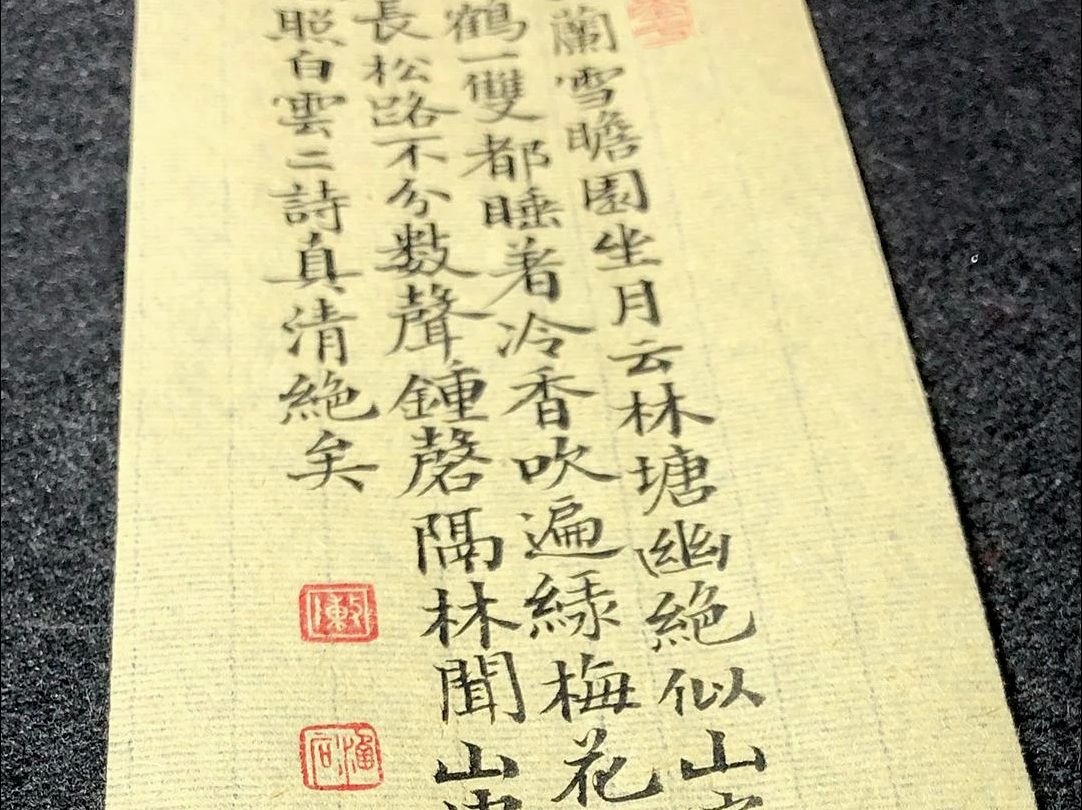 蘭雪瞻園坐月云林塘幽絕似山
鶴一雙都睡着冷香吹遍綠梅花
長松路不分數聲鍾磬隔林聞山
照白雲二詩真清絕矣